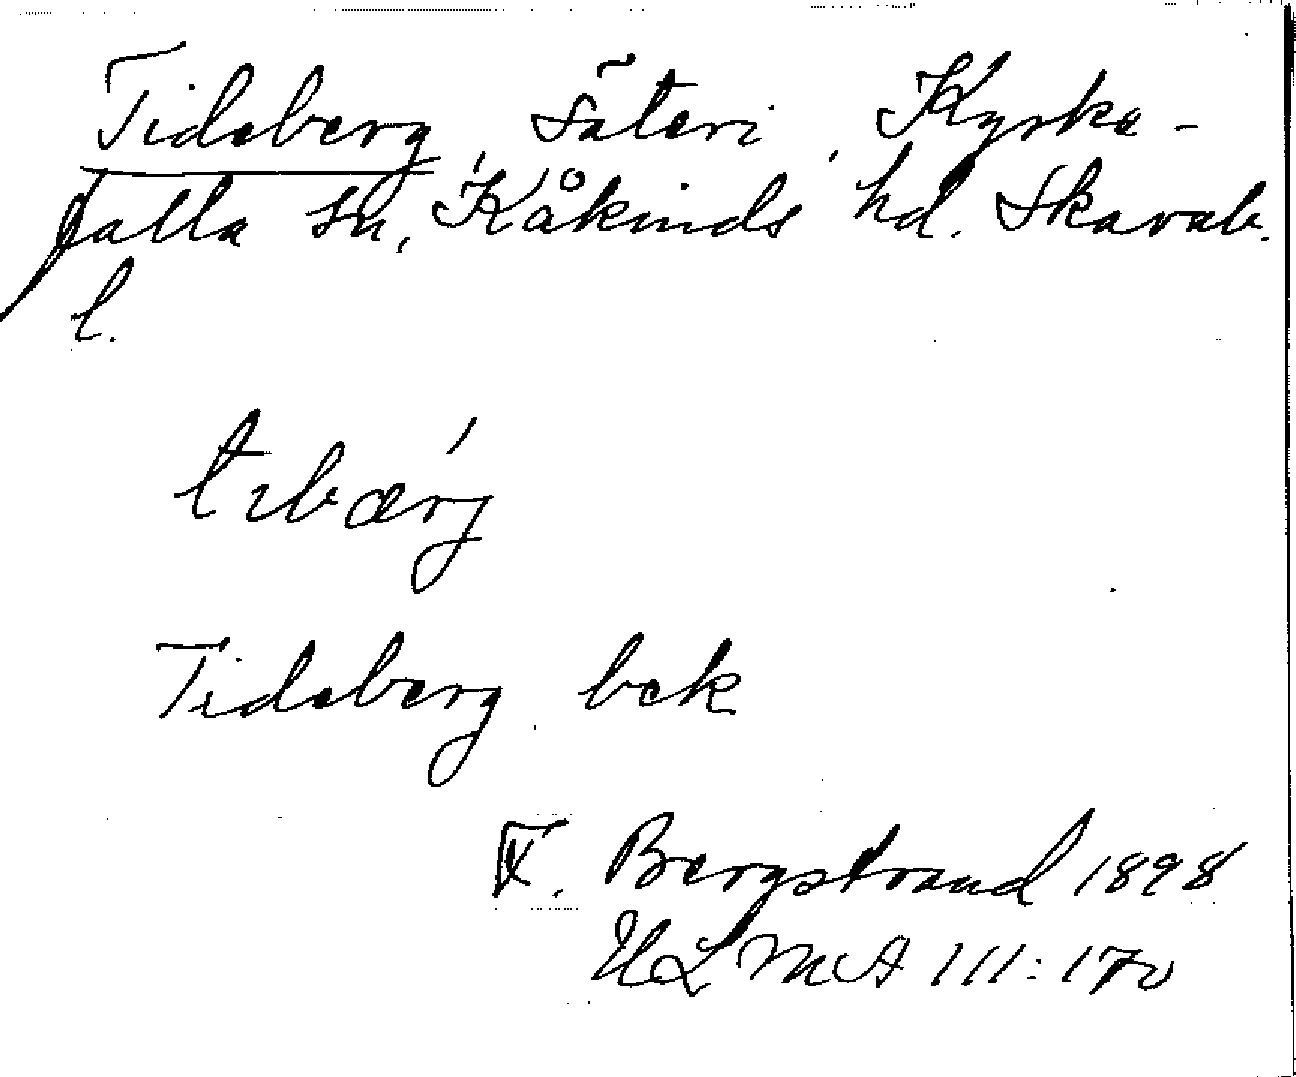 Tidaberg, Säteri, Kyrke-
falla sn, Kåkinds hd. Skarab.
l.
tıbærj
Tidaberg bek
Bergstrand 1898
ULMA 111:170